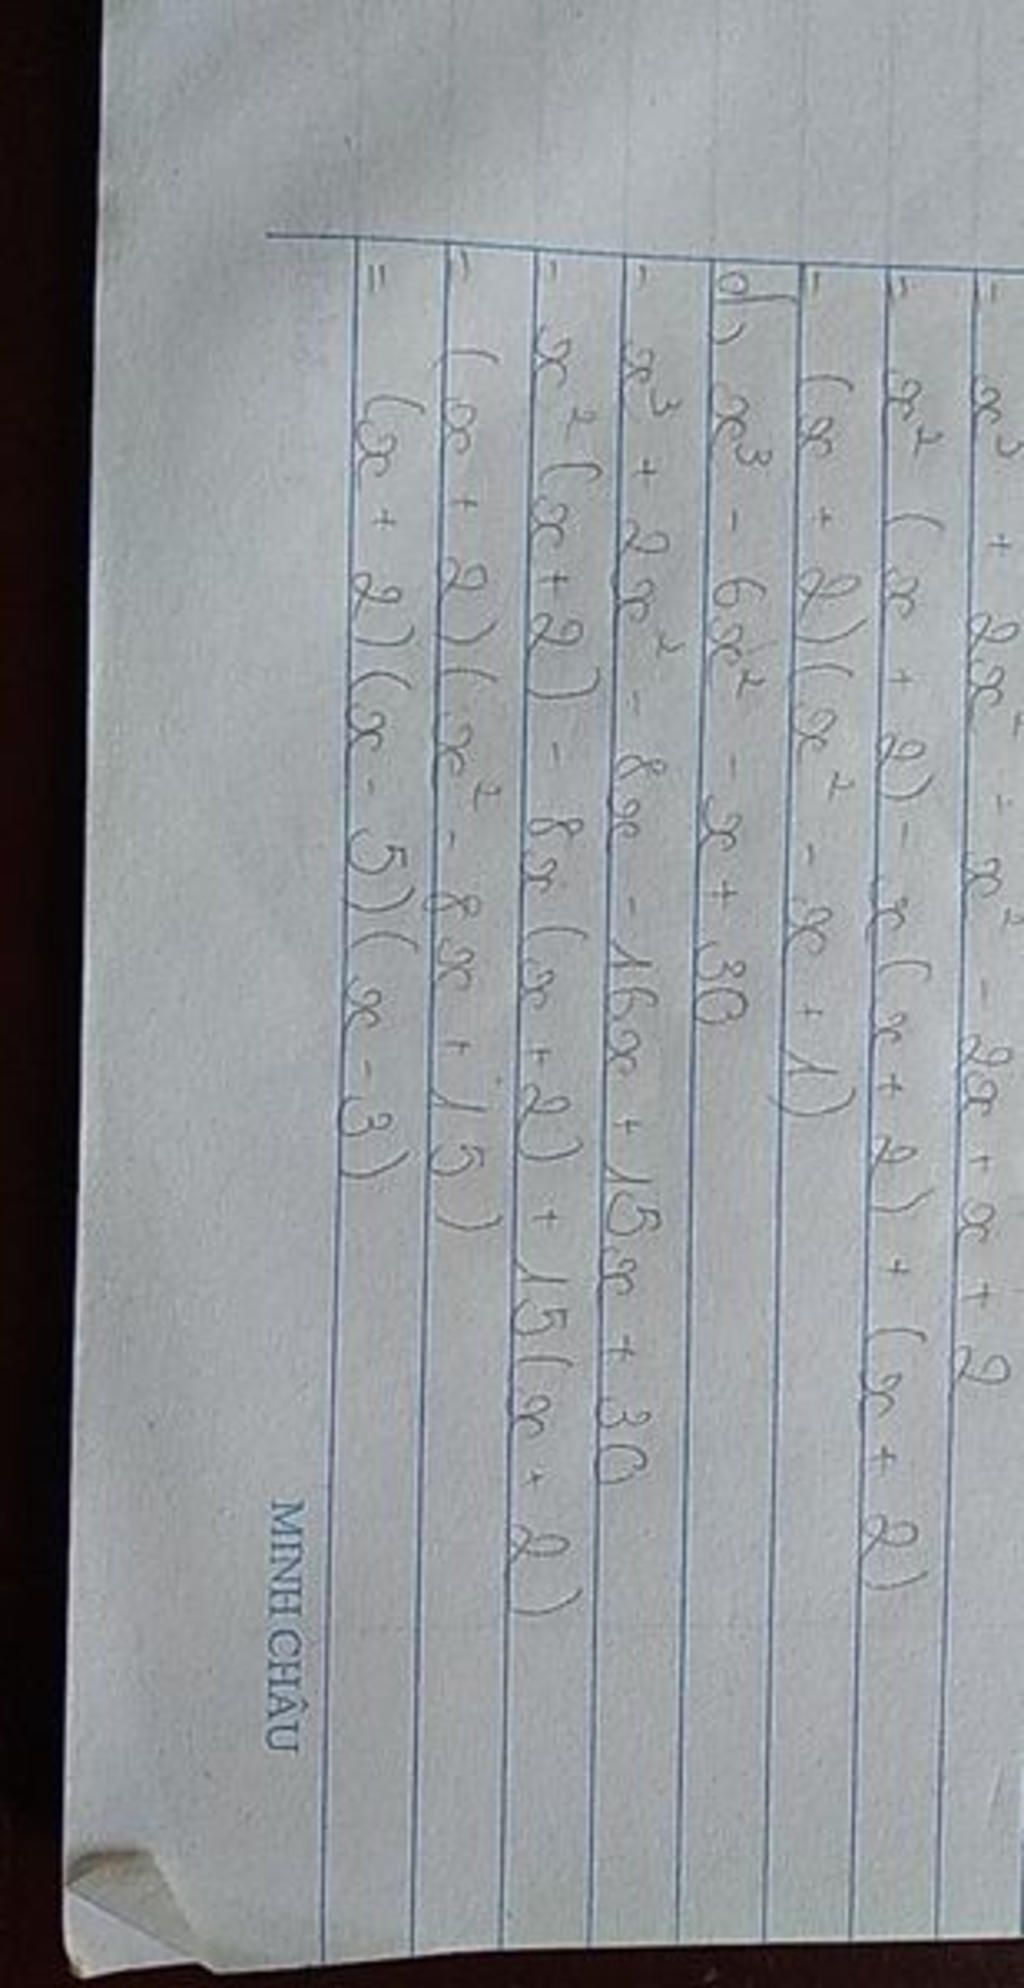 = x³ + 2x² - x² - 2x + x + 2
= x² (x + 2) - x (x + 2) + (x + 2)
= (x + 2)(x² - x + 1)
d) x³ - 6x² - x + 30
= x³ + 2x² - 8x - 16x + 15x + 30
= x² (x + 2) - 8x (x + 2) + 15 (x + 2)
= (x + 2)(x² - 8x + 15)
= (x + 2)(x - 5)(x - 3)
MINH CHÂU